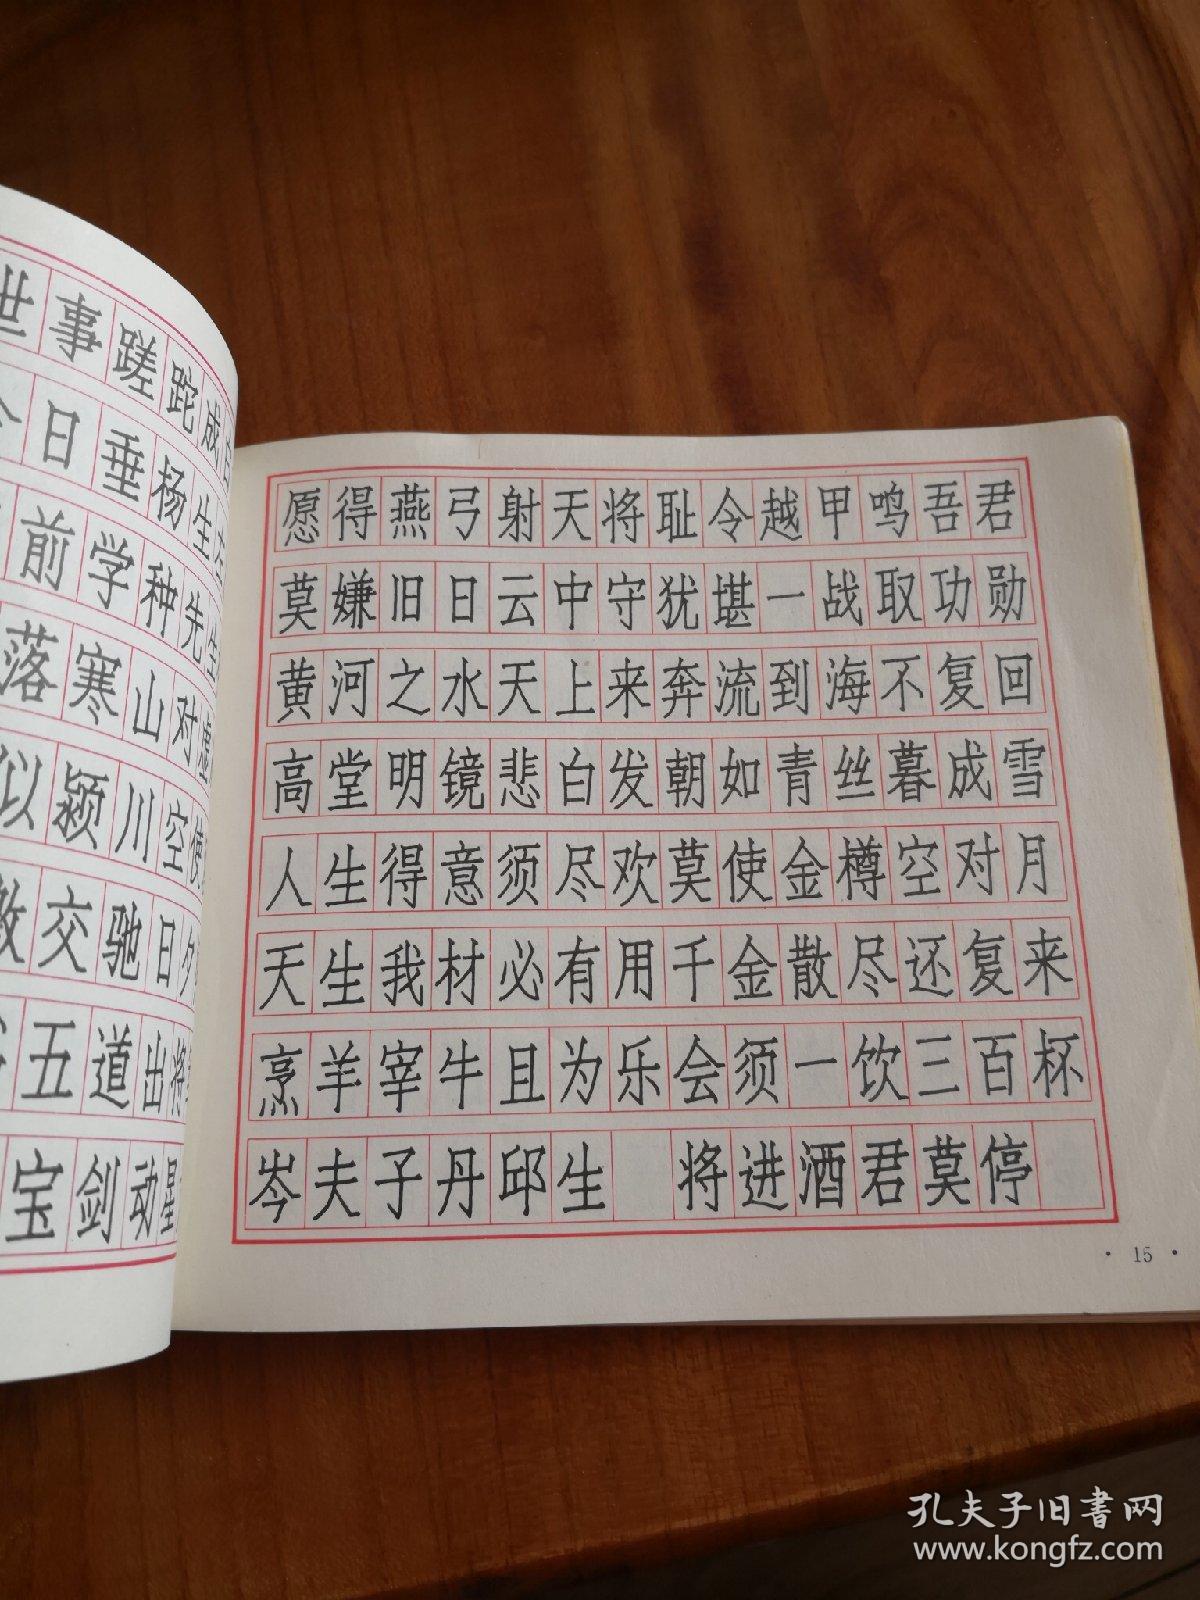 世事蹉跎成
今日垂杨生左
前学种先生
落寒山对虚
似颍川空使
交驰日夕
五道出将
宝剑动星
愿得燕弓射天将耻令越甲鸣吾君
莫嫌旧日云中守犹堪一战取功勋
黄河之水天上来奔流到海不复回
高堂明镜悲白发朝如青丝暮成雪
人生得意须尽欢莫使金樽空对月
天生我材必有用千金散尽还复来
烹羊宰牛且为乐会须一饮三百杯
岑夫子丹邱生 将进酒君莫停
· 15 ·
孔夫子旧书网
www.kongfz.com